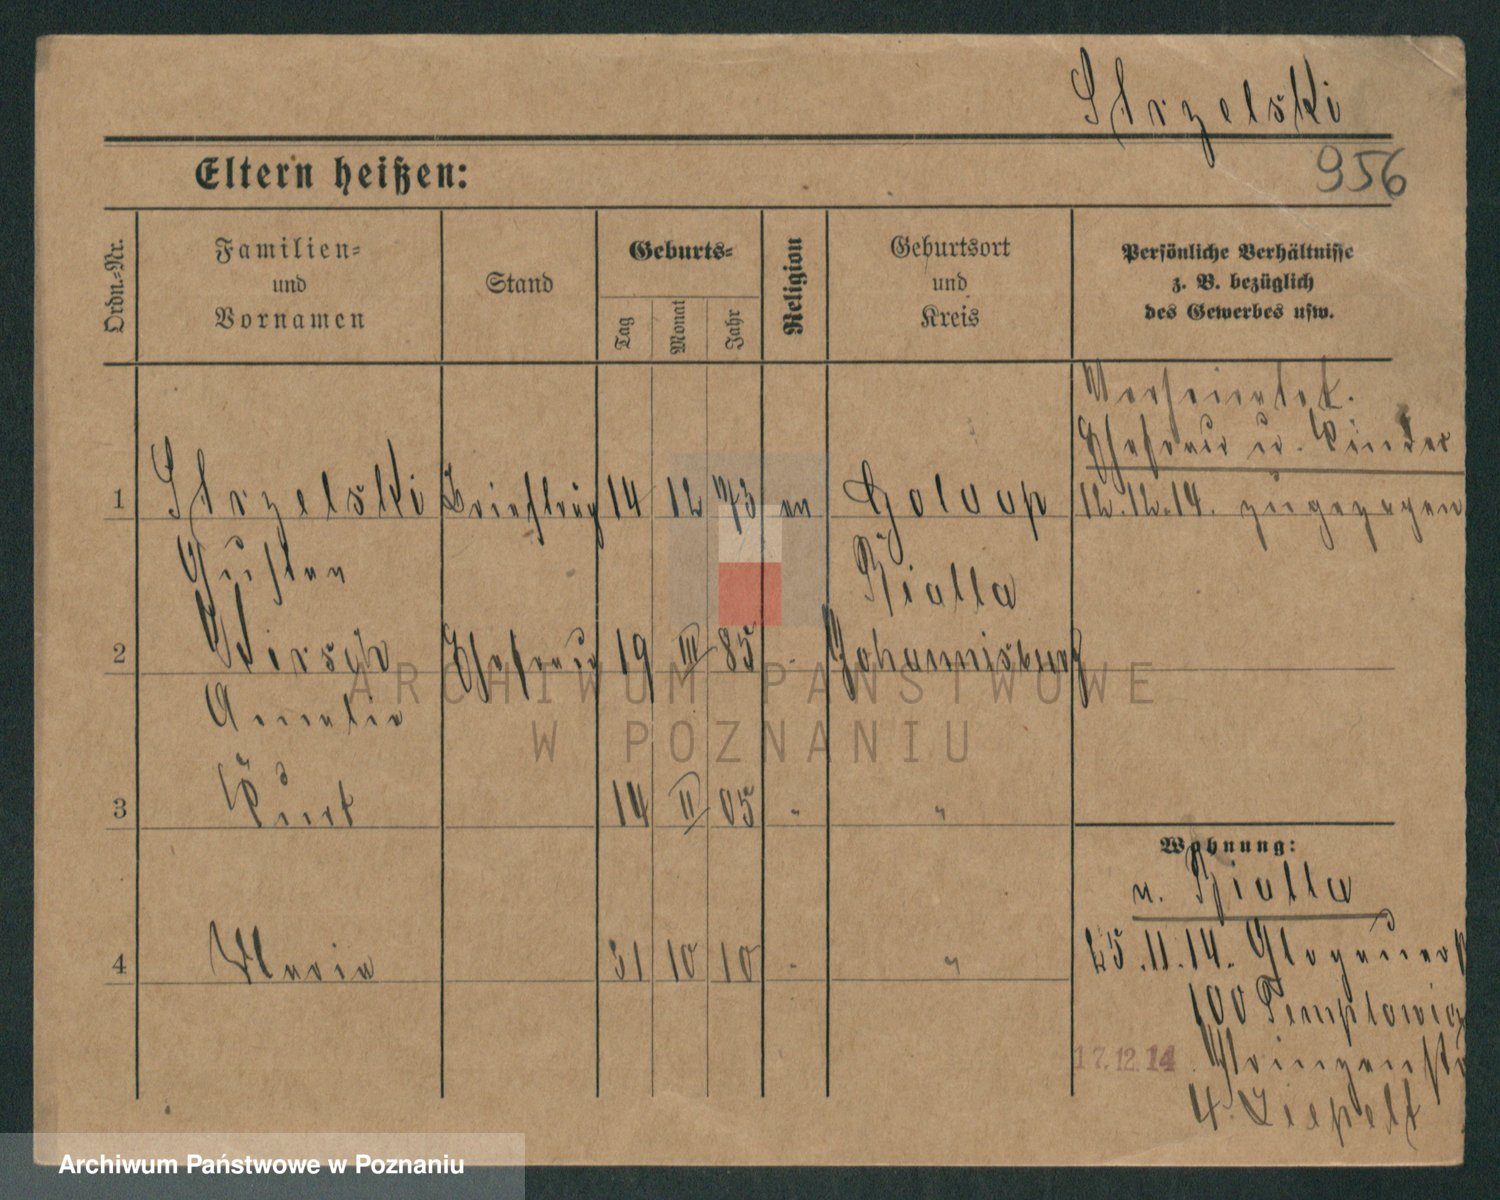 Strzelski
956
Eltern heißen:
Ordn.-Nr.
Familien-
und
Vornamen
Stand
Geburts-
Tag
Monat
Jahr
Religion
Geburtsort
und
Kreis
Persönliche Verhältnisse
z. B. bezüglich
des Gewerbes usw.
Verheiratet.
Ehefrau u. Kinder
12.12.14. zugezogen
1 Strzelski Briefträg 14 12 73 ev Goldap
Gustav
Bialla
2 Wirsch Ehefrau 19 III 85 " Johannisburg
Amalie
3 Kurt 14 II 05 " "
4 Maria 31 10 10 " "
Wohnung:
v. Bialla
25.11.14. Glogauerst
100
17.12.14
4.
ARCHIWUM PAŃSTWOWE
W POZNANIU
Archiwum Państwowe w Poznaniu